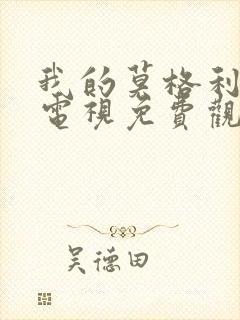 我的莫格利
電視免費觀
吴德田